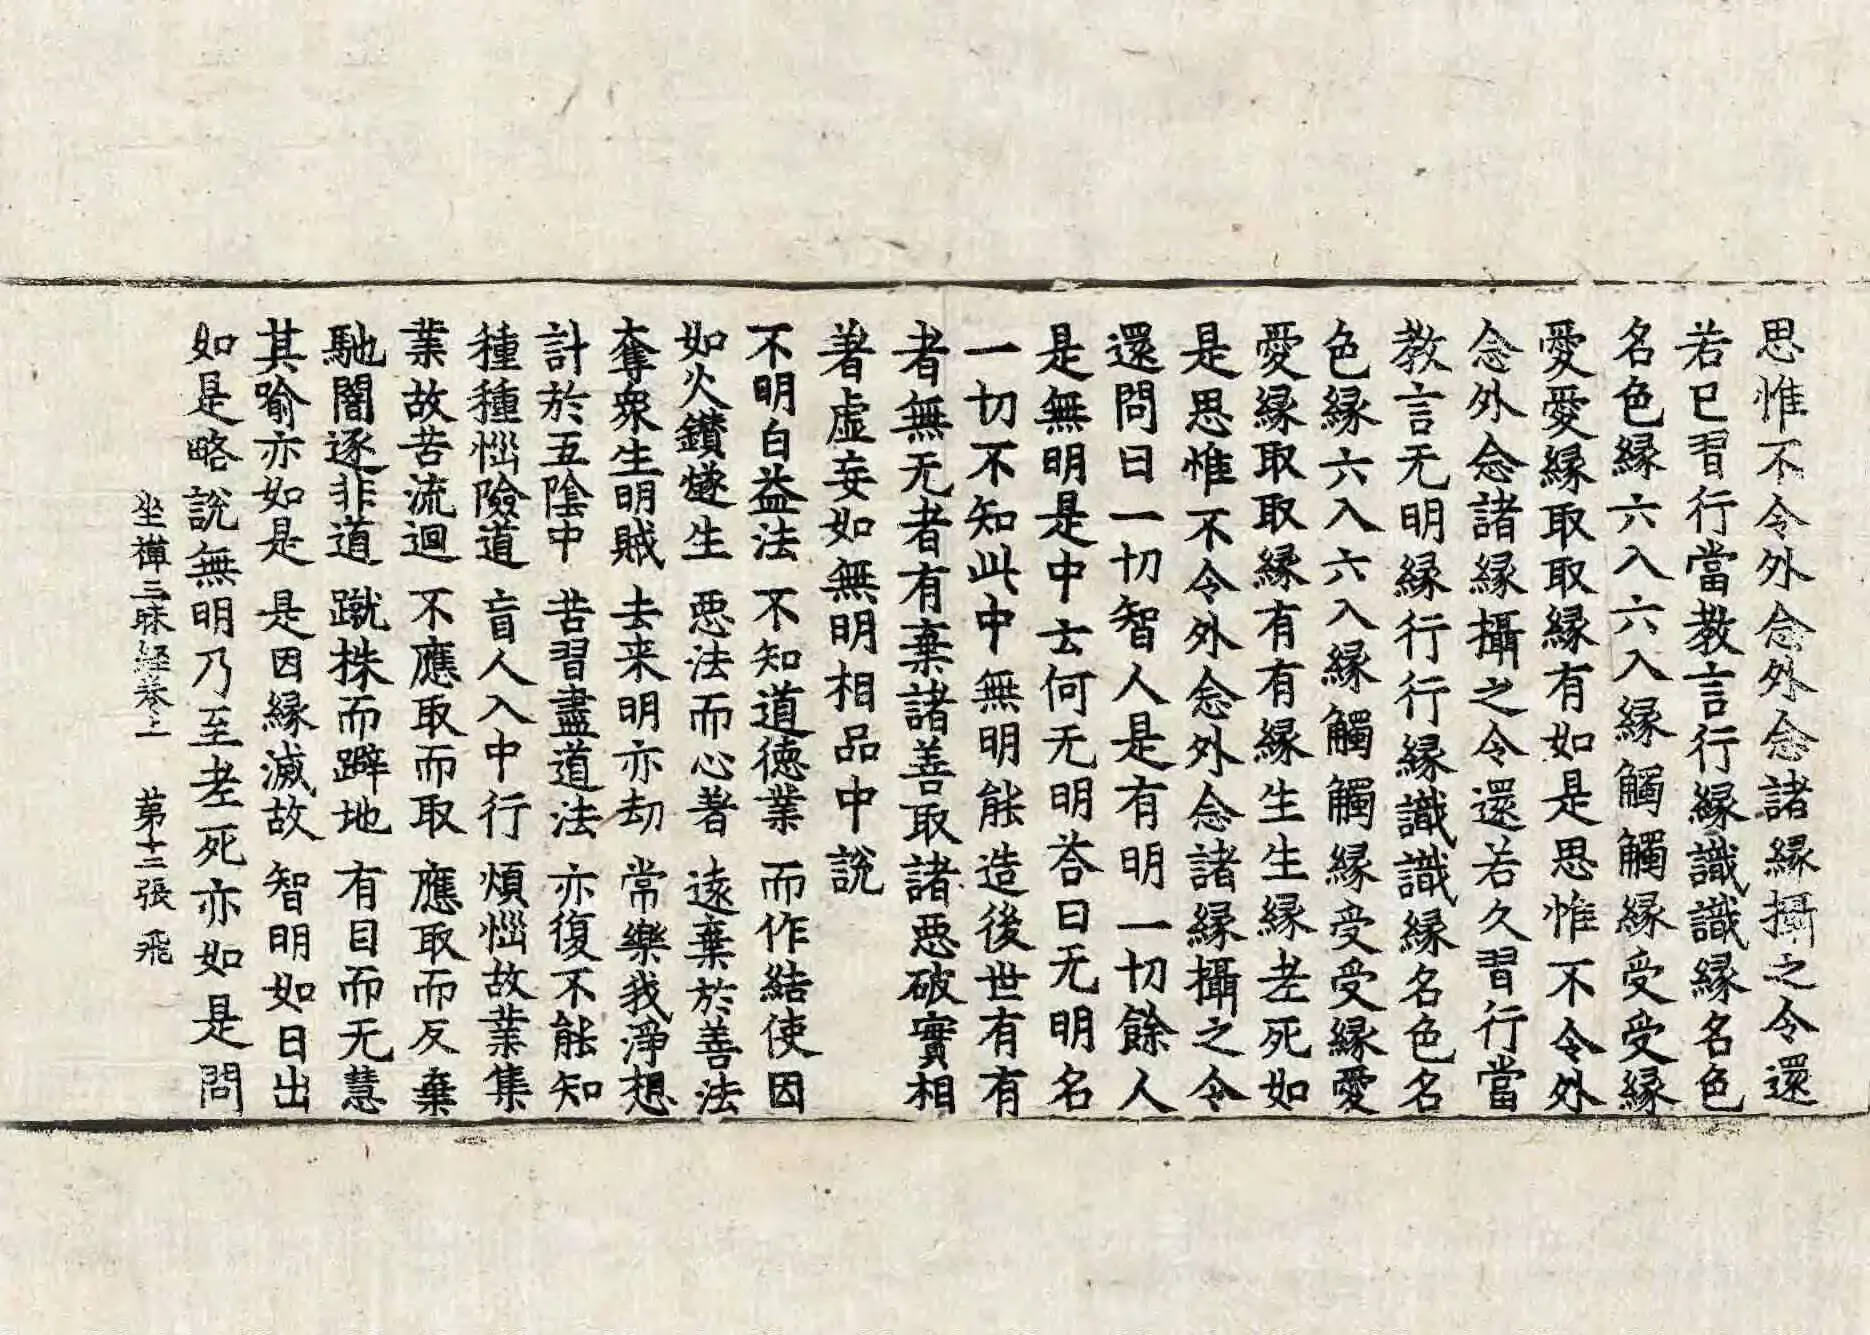 思惟不令外念外念諸縁攝之令還
若已習行當教言行縁識識縁名色
名色縁六入六入縁觸觸縁受受縁
愛愛縁取取縁有如是思惟不令外
念外念諸縁攝之令還若久習行當
教言无明縁行行縁識識縁名色名
色縁六入六入縁觸觸縁受受縁愛
愛縁取取縁有有縁生生縁老死如
是思惟不令外念外念諸縁攝之令
還問曰一切智人是有明一切餘人
是無明是中云何无明荅曰无明名
一切不知此中無明能造後世有有
者無无者有棄諸善取諸惡破實相
著虛妄如無明相品中說
不明白益法 不知道德業 而作結使因
如火鑚燧生 惡法而心著 遠棄於善法
奪衆生明賊 去来明亦劫 常樂我淨想
計於五陰中 苦習盡道法 亦復不能知
種種惱險道 盲人入中行 煩惱故業集
業故苦流迴 不應取而取 應取而反棄
馳闇逐非道 蹴株而躃地 有目而无慧
其喻亦如是 是因縁滅故 智明如日出
如是略說無明乃至老死亦如是問
坐禪三昧経卷上 苐十三張 飛